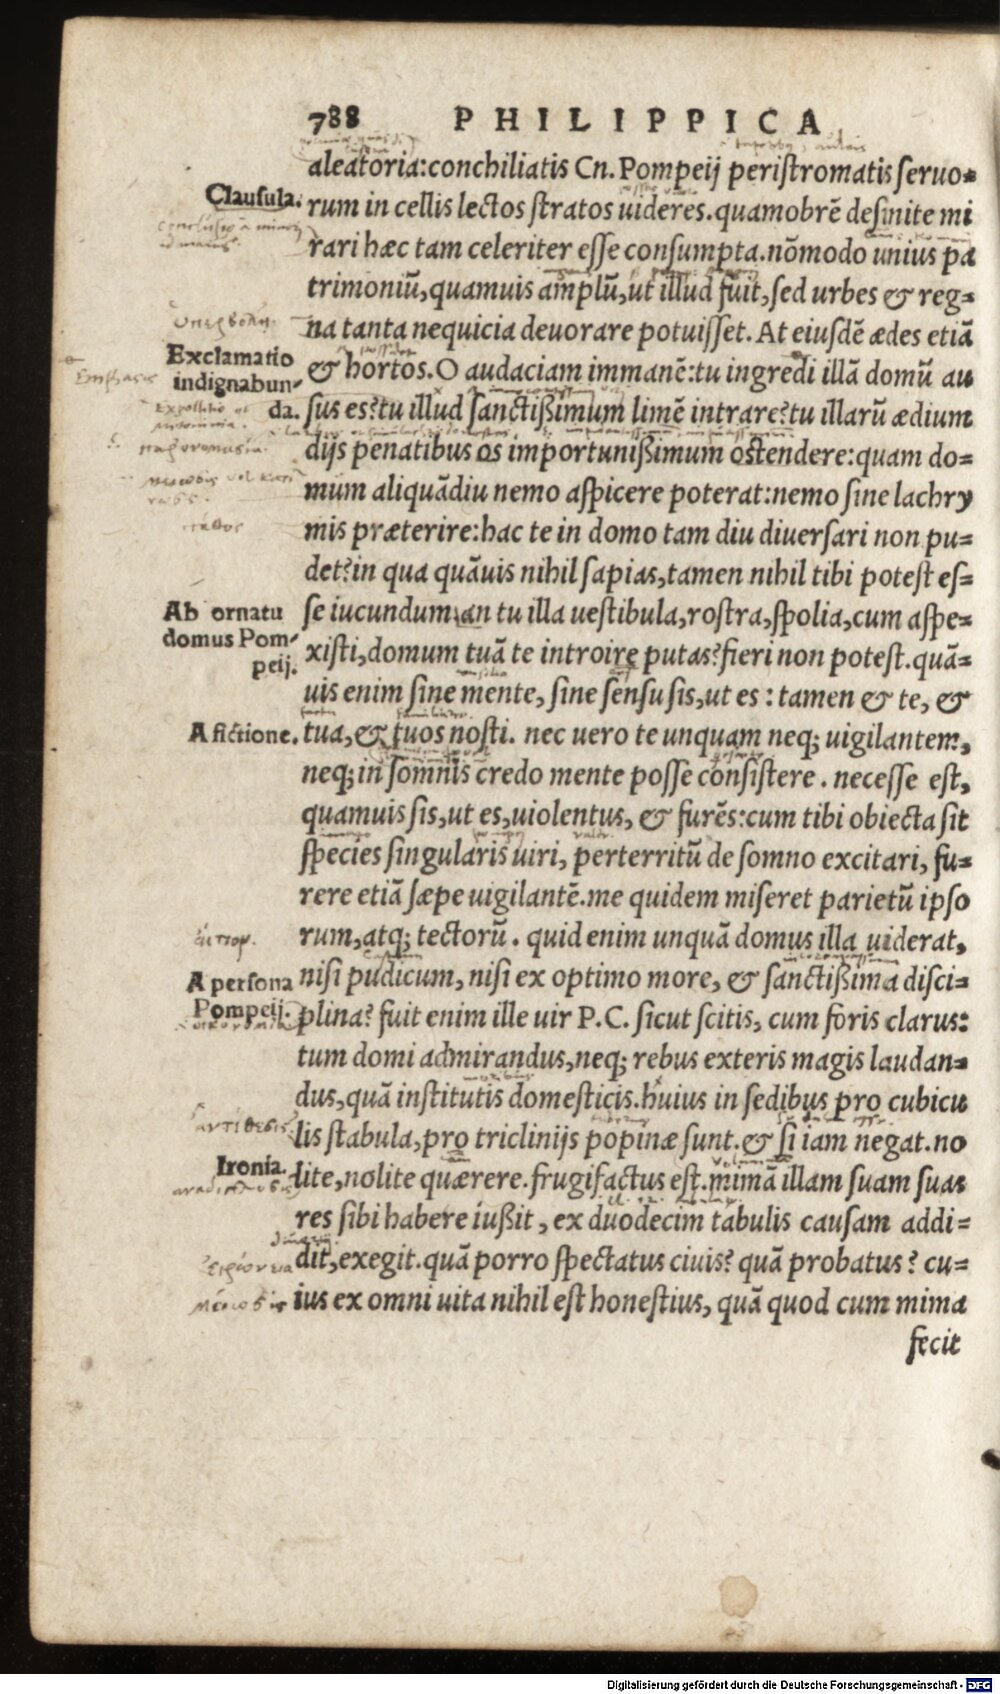 788 PHILIPPICA
aleatoria:conchiliatis Cn. Pompeij peristromatis seruo=
Clausula.
rum in cellis lectos stratos uideres.quamobrē desinite mi
rari hæc tam celeriter esse consumpta.nōmodo unius pa
trimoniū,quamuis amplū,ut illud fuit,sed urbes & reg=
na tanta nequicia deuorare potuisset. At eiusdē ædes etiā
Exclamatio
indignabun-
da.
& hortos.O audaciam immanē:tu ingredi illā domū au
sus es?tu illud sanctißimum limē intrare?tu illarū ædium
dijs penatibus os importunißimum ostendere:quam do=
mum aliquādiu nemo aspicere poterat:nemo sine lachry
mis præterire:hac te in domo tam diu diuersari non pu=
det?in qua quāuis nihil sapias,tamen nihil tibi potest es=
Ab ornatu
domus Pom-
peij.
se iucundum,an tu illa uestibula,rostra,spolia,cum aspe=
xisti,domum tuā te introire putas?fieri non potest.quā=
uis enim sine mente, sine sensu sis,ut es : tamen & te, &
A fictione.
tua,& tuos nosti. nec uero te unquam neq; uigilantem,
neq; in somnis credo mente posse consistere . necesse est,
quamuis sis,ut es,uiolentus, & furēs:cum tibi obiecta sit
species singularis uiri, perterritū de somno excitari, fu=
rere etiā sæpe uigilantē.me quidem miseret parietū ipso
rum,atq; tectorū . quid enim unquā domus illa uiderat,
A persona
Pompeij.
nisi pudicum, nisi ex optimo more, & sanctißima disci=
plina? fuit enim ille uir P.C. sicut scitis, cum foris clarus:
tum domi admirandus,neq; rebus exteris magis laudan=
dus,quā institutis domesticis.huius in sedibus pro cubicu
lis stabula,pro triclinijs popinæ sunt.& si iam negat.no
Ironia.
lite,nolite quærere.frugifactus est.mimā illam suam suas
res sibi habere iußit , ex duodecim tabulis causam addi=
dit,exegit.quā porro spectatus ciuis? quā probatus ? cu=
ius ex omni uita nihil est honestius, quā quod cum mima
fecit
Digitalisierung gefördert durch die Deutsche Forschungsgemeinschaft - DFG